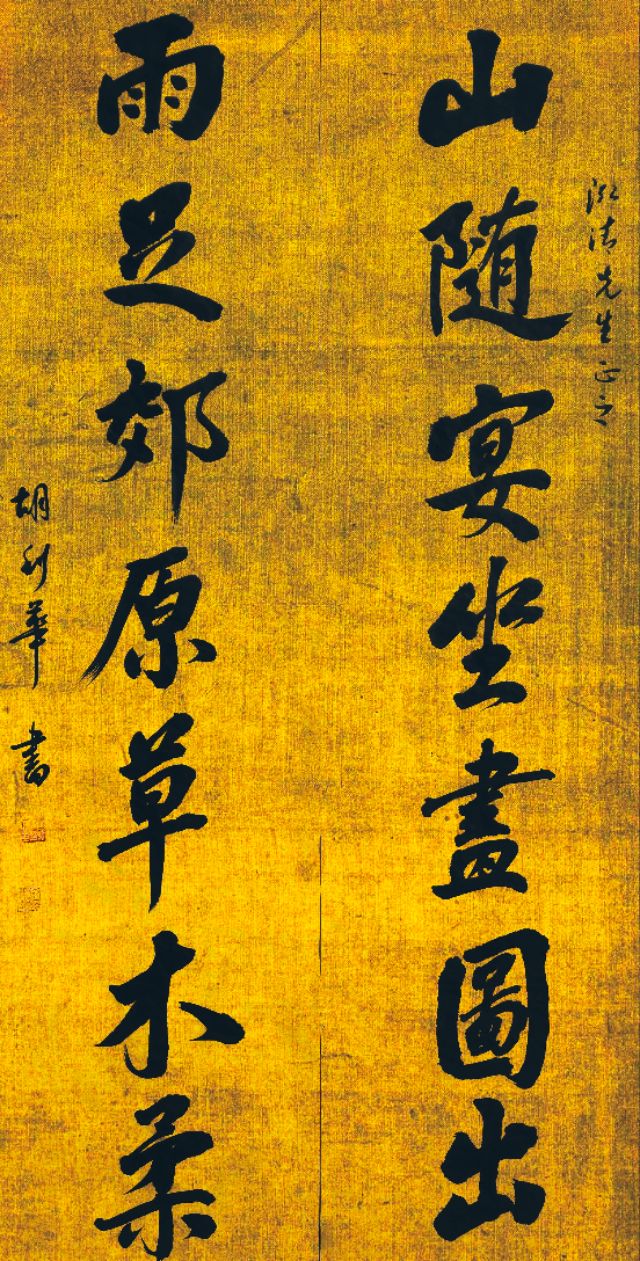 清先生正之
山随宴坐畫圖出
雨足郊原草木柔
胡華書